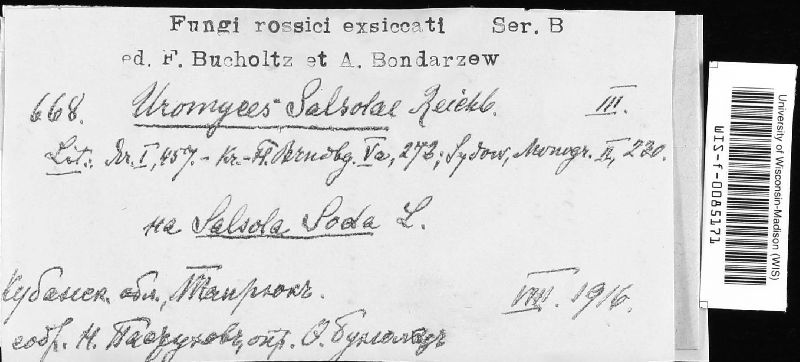 Fungi rossici exsiccati Ser. B
ed. F. Bucholtz et A. Bondarzew
668. Uromyces Salsolae Reichb. III.
Lit.: Tr. I, 457. - Kr.-Fl. Brndbg. Va, 273; Sydow, Monogr. II, 230.
на Salsola Soda L.
Кубанск. обл., Темрюкъ. VIII. 1916.
собр. Н. опр. Ѳ. Бухгольцъ
University of Wisconsin-Madison (WIS)
WIS-f-0085171